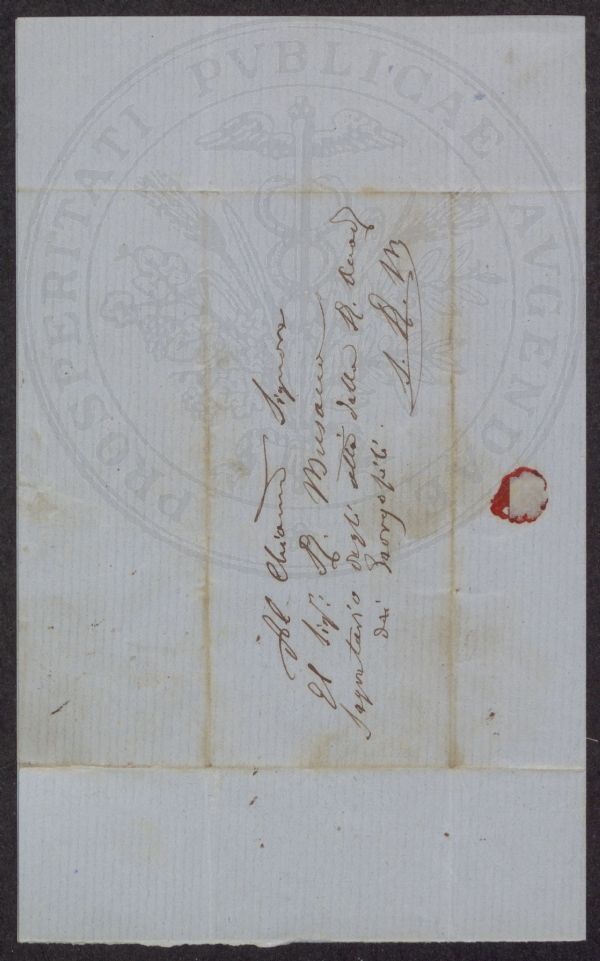 PROSPERITATI PVBLICAE AVGENDAE
Al Chiarmo Signore
Il Sigr R. Busacca
Segretario degli atti della R. Accad
dei Georgofili.
S. R. M